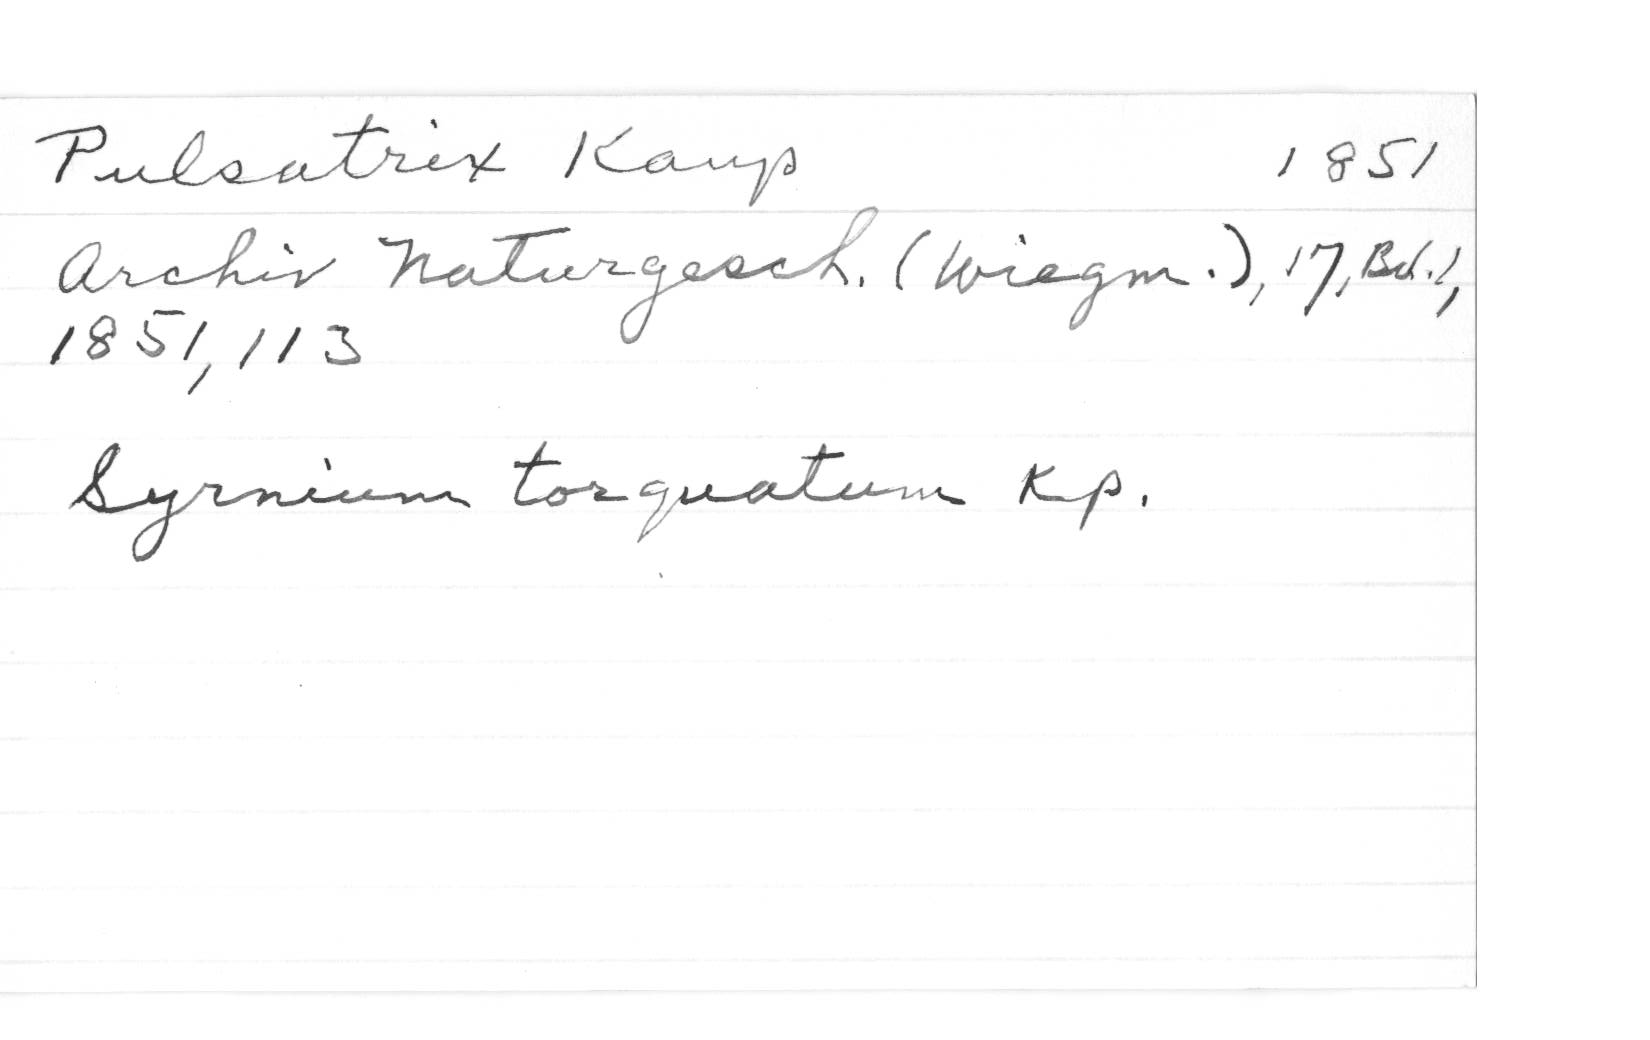 Pulsatrix Kaup 1851
Archiv Naturgesch. (Wiegm.), 17, Bd. 1,
1851, 113
Syrnium torquatum Kp.